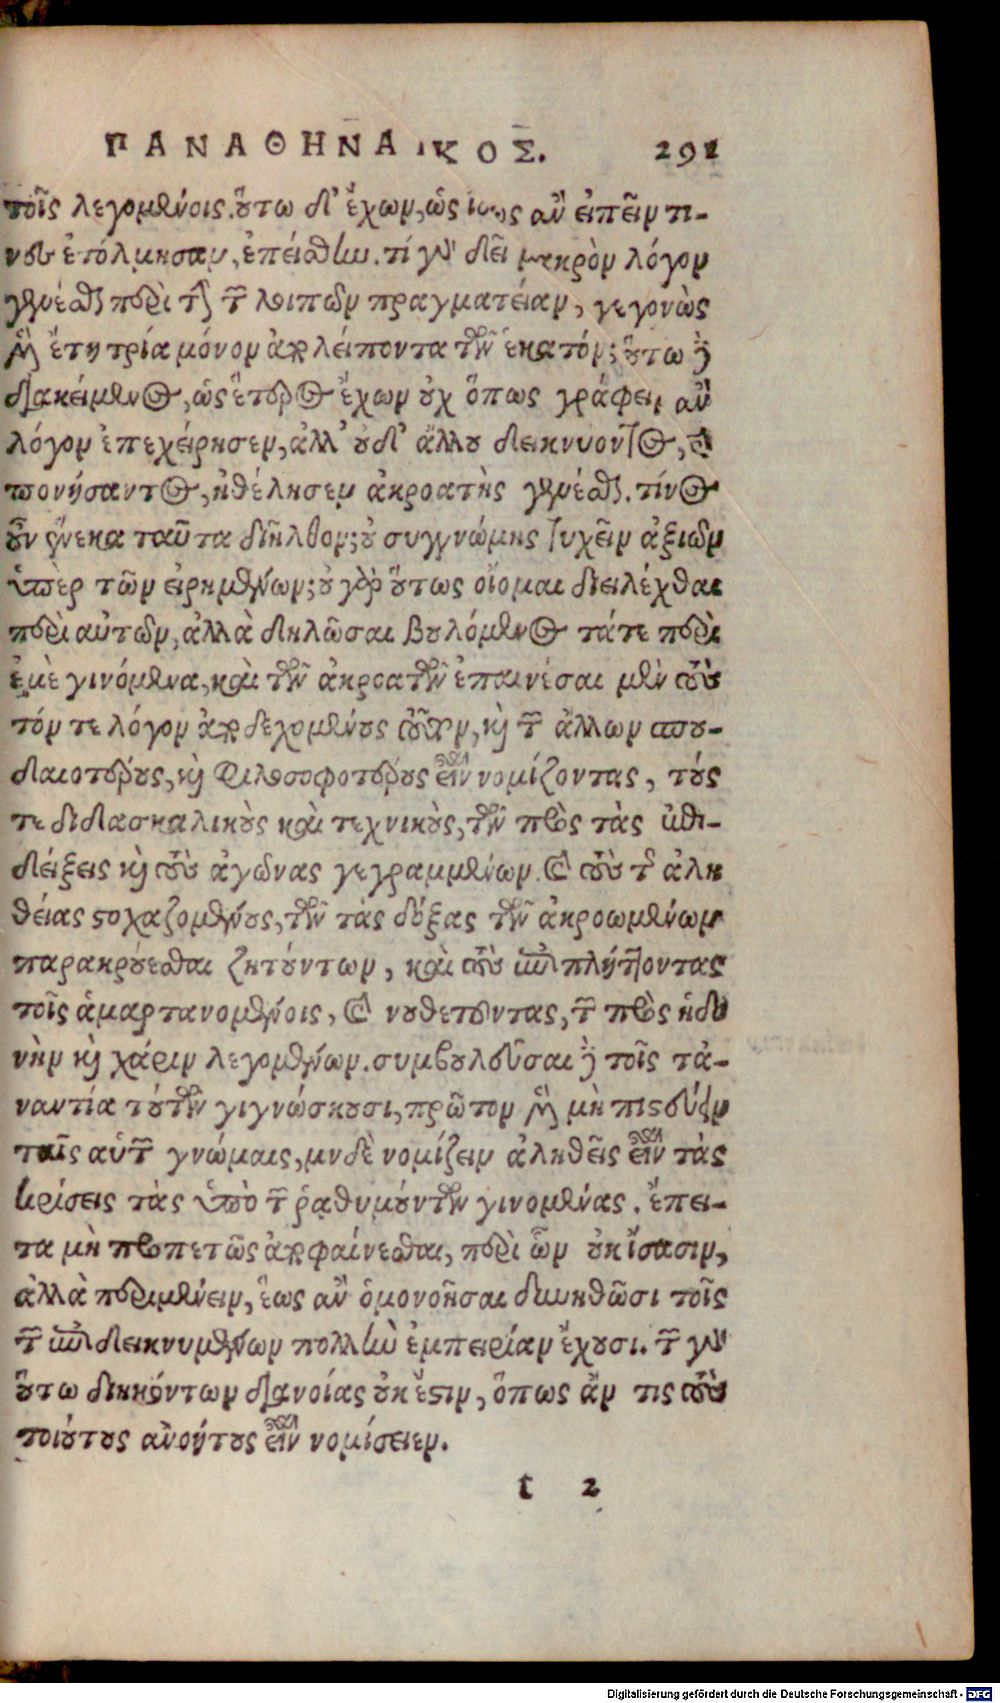 ΠΑΝΑΘΗΝΑΙΚΟΣ. 291
τοῖς λεγομένοις. οὕτω δ' ἔχων, ὡς ἴσως ἂν εἰπεῖν τι-
νὲς ἐτόλμησαν, ἐπείσθην. τί γὰρ δεῖ μακρὸν λόγον
γενέσθαι περὶ τὴν τῶν λοιπῶν πραγματείαν, γεγονὼς
μὲν ἔτη τρία μόνον ἀπολείποντα τῶν ἑκατόν; οὕτω δὲ
διακείμενος, ὡς ἕτερος ἔχων οὐχ ὅπως γράφειν ἂν
λόγον ἐπεχείρησεν, ἀλλ' οὐδ' ἄλλου δεικνύοντος, καὶ
πονήσαντος, ἠθέλησεν ἀκροατὴς γενέσθαι. τίνος
οὖν ἕνεκα ταῦτα διῆλθον; οὐ συγγνώμης τυχεῖν ἀξιῶν
ὑπὲρ τῶν εἰρημένων; οὐ γὰρ οὕτως οἴομαι διειλέχθαι
περὶ αὐτῶν, ἀλλὰ δηλῶσαι βουλόμενος τά τε περὶ
ἐμὲ γινόμενα, καὶ τῶν ἀκροατῶν ἐπαινέσαι μὲν τοὺς
τόν τε λόγον ἀποδεχομένους τοῦτον, καὶ τῶν ἄλλων σπου-
δαιοτέρους, καὶ φιλοσοφοτέρους εἶναι νομίζοντας, τούς
τε διδασκαλικοὺς καὶ τεχνικοὺς, τῶν πρὸς τὰς ἐπι-
δείξεις καὶ τοὺς ἀγῶνας γεγραμμένων. καὶ τοὺς τῆς ἀλη
θείας στοχαζομένους, τῶν τὰς δόξας τῶν ἀκροωμένων
παρακρούεσθαι ζητούντων, καὶ τοὺς ἐπιπλήττοντας
τοῖς ἁμαρτανομένοις, καὶ νουθετοῦντας, τῶν πρὸς ἡδο
νὴν καὶ χάριν λεγομένων. συμβουλεῦσαι δὲ τοῖς τἀ-
ναντία τούτων γιγνώσκουσι, πρῶτον μὲν μὴ πιστεύειν
ταῖς αὑτῶν γνώμαις, μηδὲ νομίζειν ἀληθεῖς εἶναι τὰς
κρίσεις τὰς ὑπὸ τῶν ῥᾳθυμούντων γινομένας. ἔπει-
τα μὴ προπετῶς ἀποφαίνεσθαι, περὶ ὧν οὐκ ἴσασιν,
ἀλλὰ περιμένειν, ἕως ἂν ὁμονοῆσαι δυνηθῶσι τοῖς
τῶν ἐπιδεικνυμένων πολλὴν ἐμπειρίαν ἔχουσι. τῶν γὰρ
οὕτω διοικούντων διανοίας οὐκ ἔστιν, ὅπως ἄν τις τοὺς
τοιούτους ἀνοήτους εἶναι νομίσειεν.
t 2
Digitalisierung gefördert durch die Deutsche Forschungsgemeinschaft - DFG